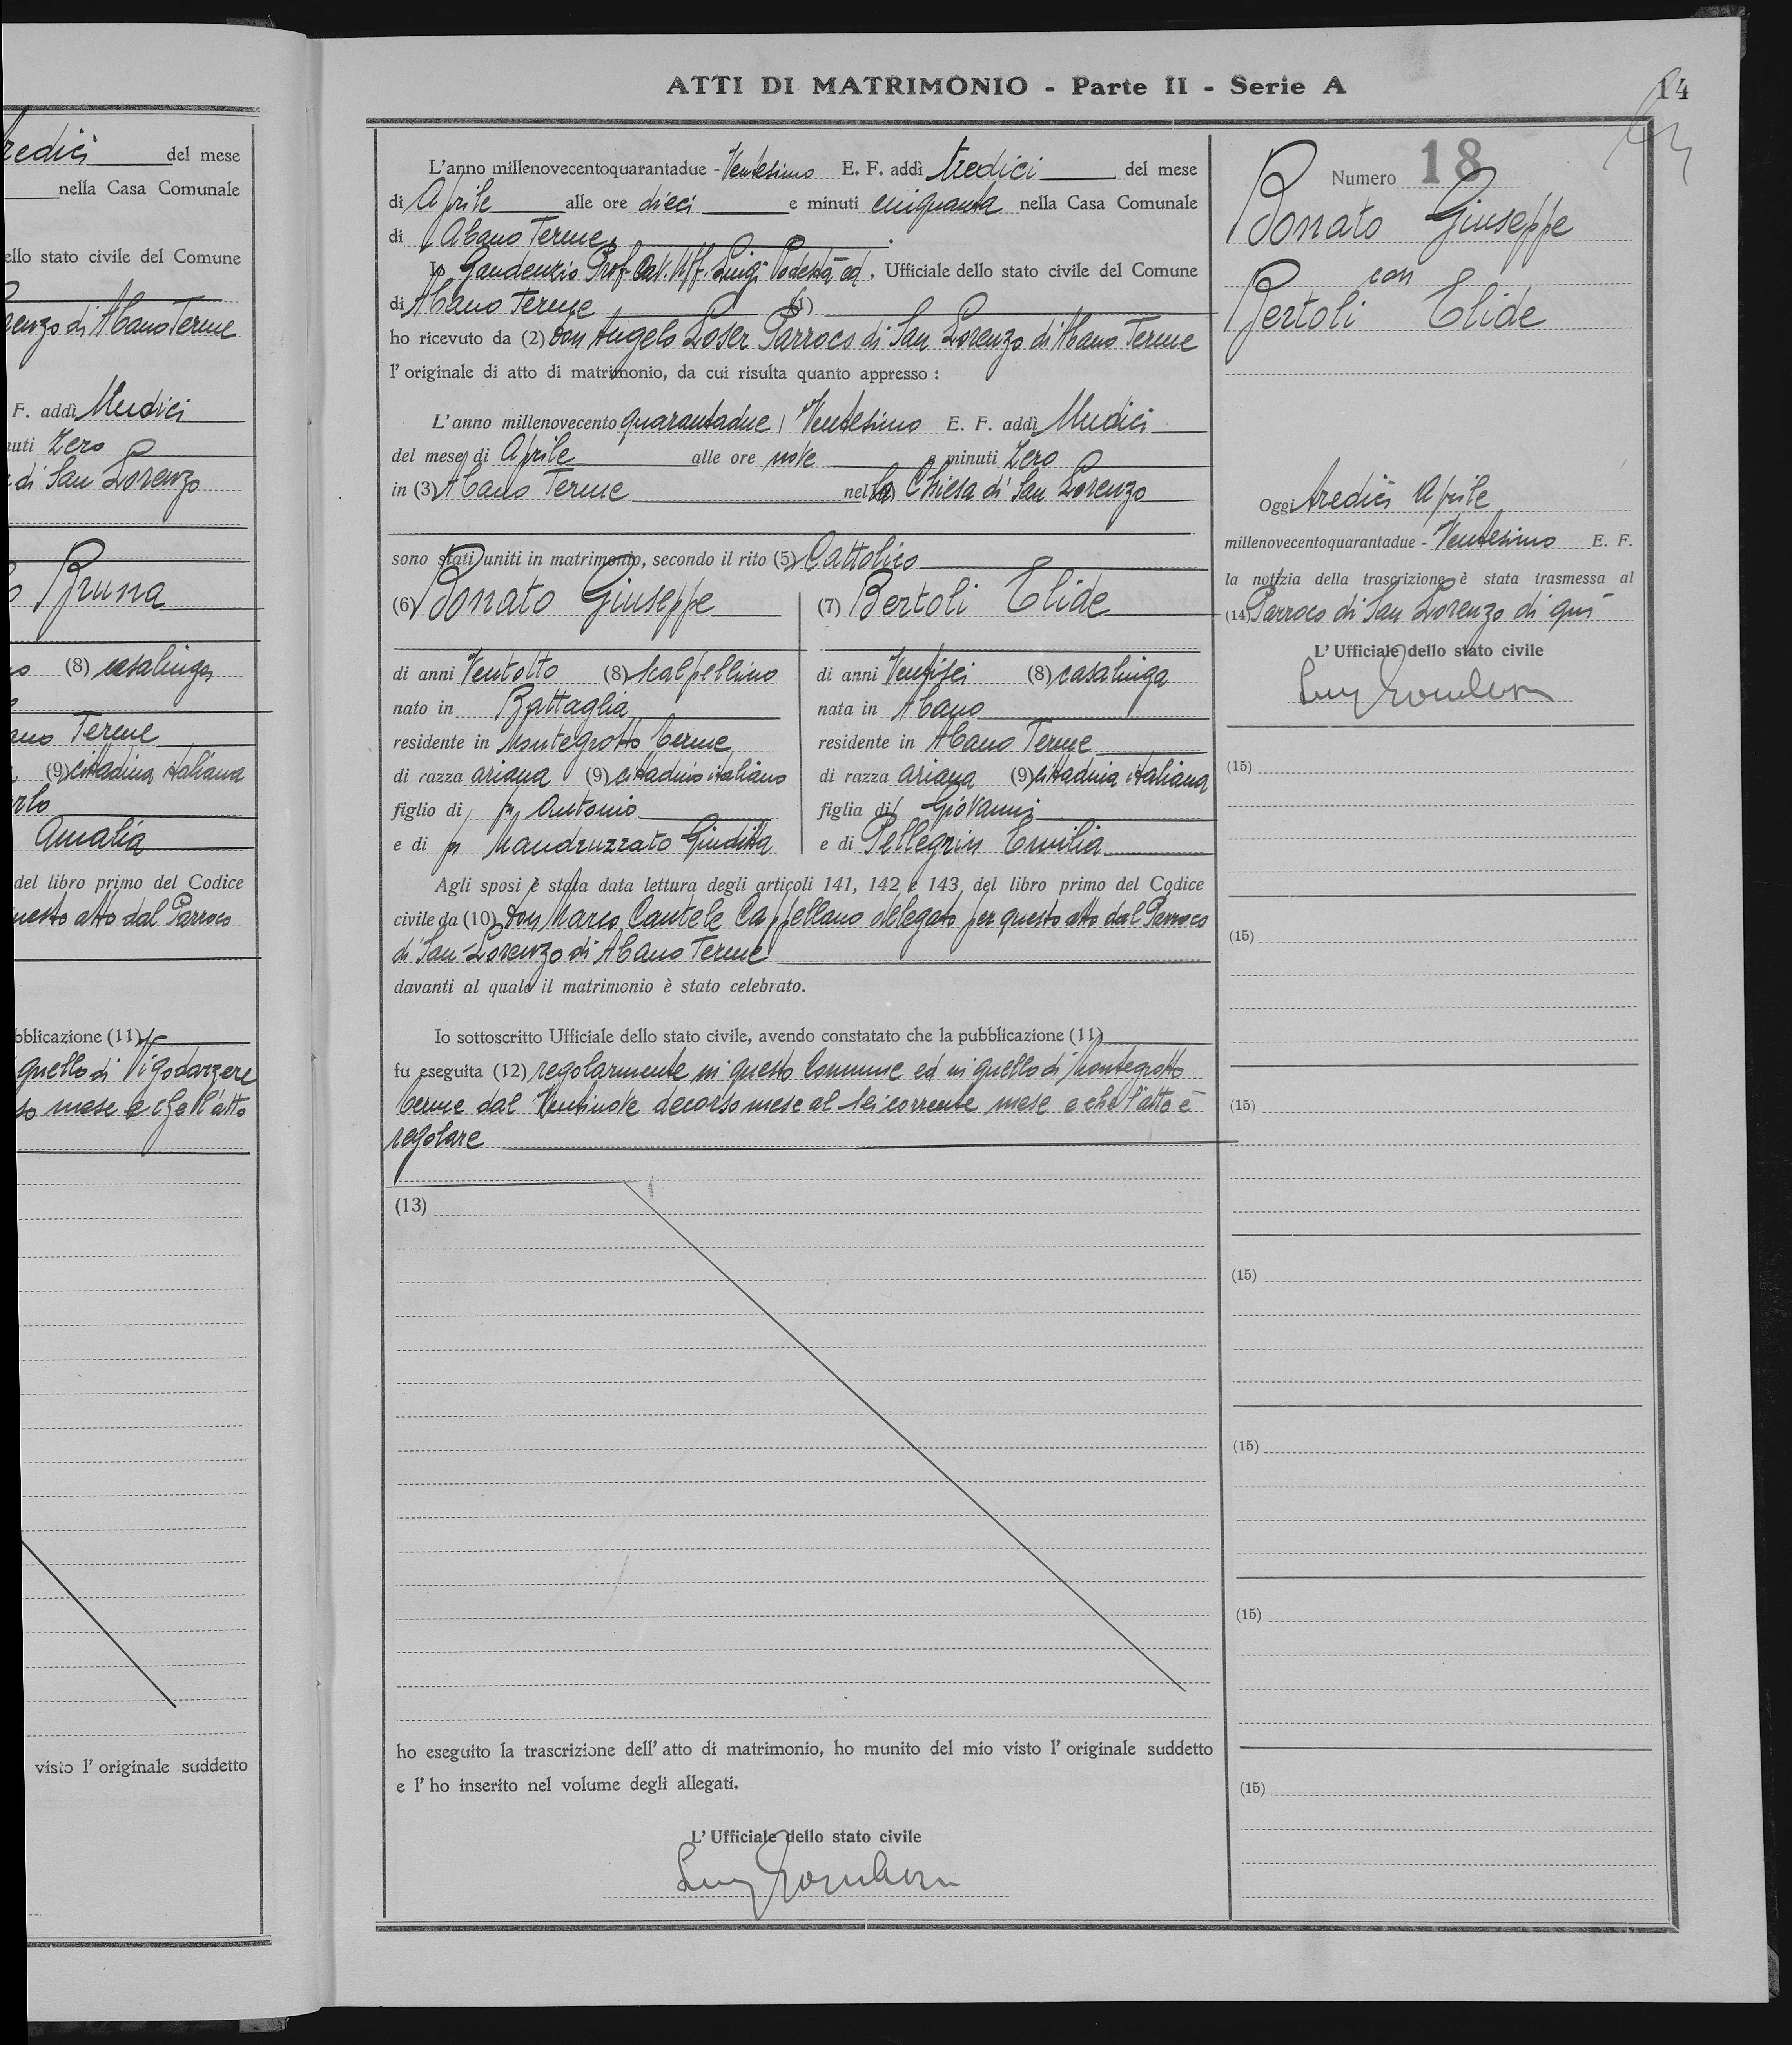 redici del mese
nella Casa Comunale
ello stato civile del Comune
enzo di Abano Terme
F. addì Undici
nuti Zero
di San Lorenzo
Bruna
(8) casalinga
ano Terme
(9) cittadina italiana
Amalia
del libro primo del Codice
uesto atto dal Parroco
bblicazione (11)
quello di Vigodarzere
so mese e che l'atto
visto l' originale suddetto
ATTI DI MATRIMONIO - Parte II - Serie A
14
L'anno millenovecentoquarantadue - Ventesimo E. F. addì tredici del mese
di Aprile alle ore dieci e minuti cinquanta nella Casa Comunale
di Abano Terme.
Io Gaudenzio Prof. Cav. Uff. Luigi Podestà ed, Ufficiale dello stato civile del Comune
di Abano Terme (1)
ho ricevuto da (2) don Angelo Loser Parroco di San Lorenzo di Abano Terme
l' originale di atto di matrimonio, da cui risulta quanto appresso :
L'anno millenovecento quarantadue Ventesimo E. F. addì Undici
del mese di Aprile alle ore nove e minuti Zero
in (3) Abano Terme nella Chiesa di San Lorenzo
sono stati uniti in matrimonio, secondo il rito (5) Cattolico
(6) Bonato Giuseppe (7) Bertoli Elide
di anni Ventotto (8) scalpellino di anni Ventisei (8) casalinga
nato in Battaglia nata in Abano
residente in Montegrotto Terme residente in Abano Terme
di razza ariana (9) cittadino italiano di razza ariana (9) cittadina italiana
figlio di fu Antonio figlia di Giovanni
e di fu Mandruzzato Giuditta e di Pellegrin Emilia
Agli sposi è stata data lettura degli articoli 141, 142 e 143 del libro primo del Codice
civile da (10) don Marco Cantele Cappellano delegato per questo atto dal Parroco
di San Lorenzo di Abano Terme
davanti al quale il matrimonio è stato celebrato.
Io sottoscritto Ufficiale dello stato civile, avendo constatato che la pubblicazione (11)
fu eseguita (12) regolarmente in questo Comune ed in quello di Montegrotto
Terme dal Ventinove decorso mese al sei corrente mese e che l'atto è
regolare
(13)
ho eseguito la trascrizione dell' atto di matrimonio, ho munito del mio visto l' originale suddetto
e l' ho inserito nel volume degli allegati.
L' Ufficiale dello stato civile
Numero 18
Bonato Giuseppe
con
Bertoli Elide
Oggi tredici Aprile
millenovecentoquarantadue - Ventesimo E. F.
la notizia della trascrizione è stata trasmessa al
(14) Parroco di San Lorenzo di qui
L' Ufficiale dello stato civile
(15)
(15)
(15)
(15)
(15)
(15)
(15)